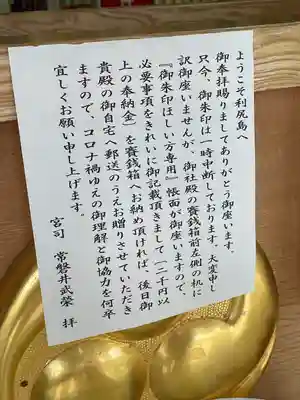 ようこそ利尻島へ
御奉拝賜りましてありがとう御座います。
只今、御朱印は一時中断しております。大変申し
訳御座いませんが、御社殿の賽銭箱前左側の机に
『御朱印ほしい方専用』帳面が御座いますので、
必要事項をきれいに御記載頂きまして(二千円以
上の奉納金)を賽銭箱へお納め頂ければ、後日御
貴殿の御自宅へ郵送のうえお贈りさせていただき
ますので、コロナ禍ゆえの御理解と御協力を何卒
宜しくお願い申し上げます。
宮司 常磐井武榮 拝